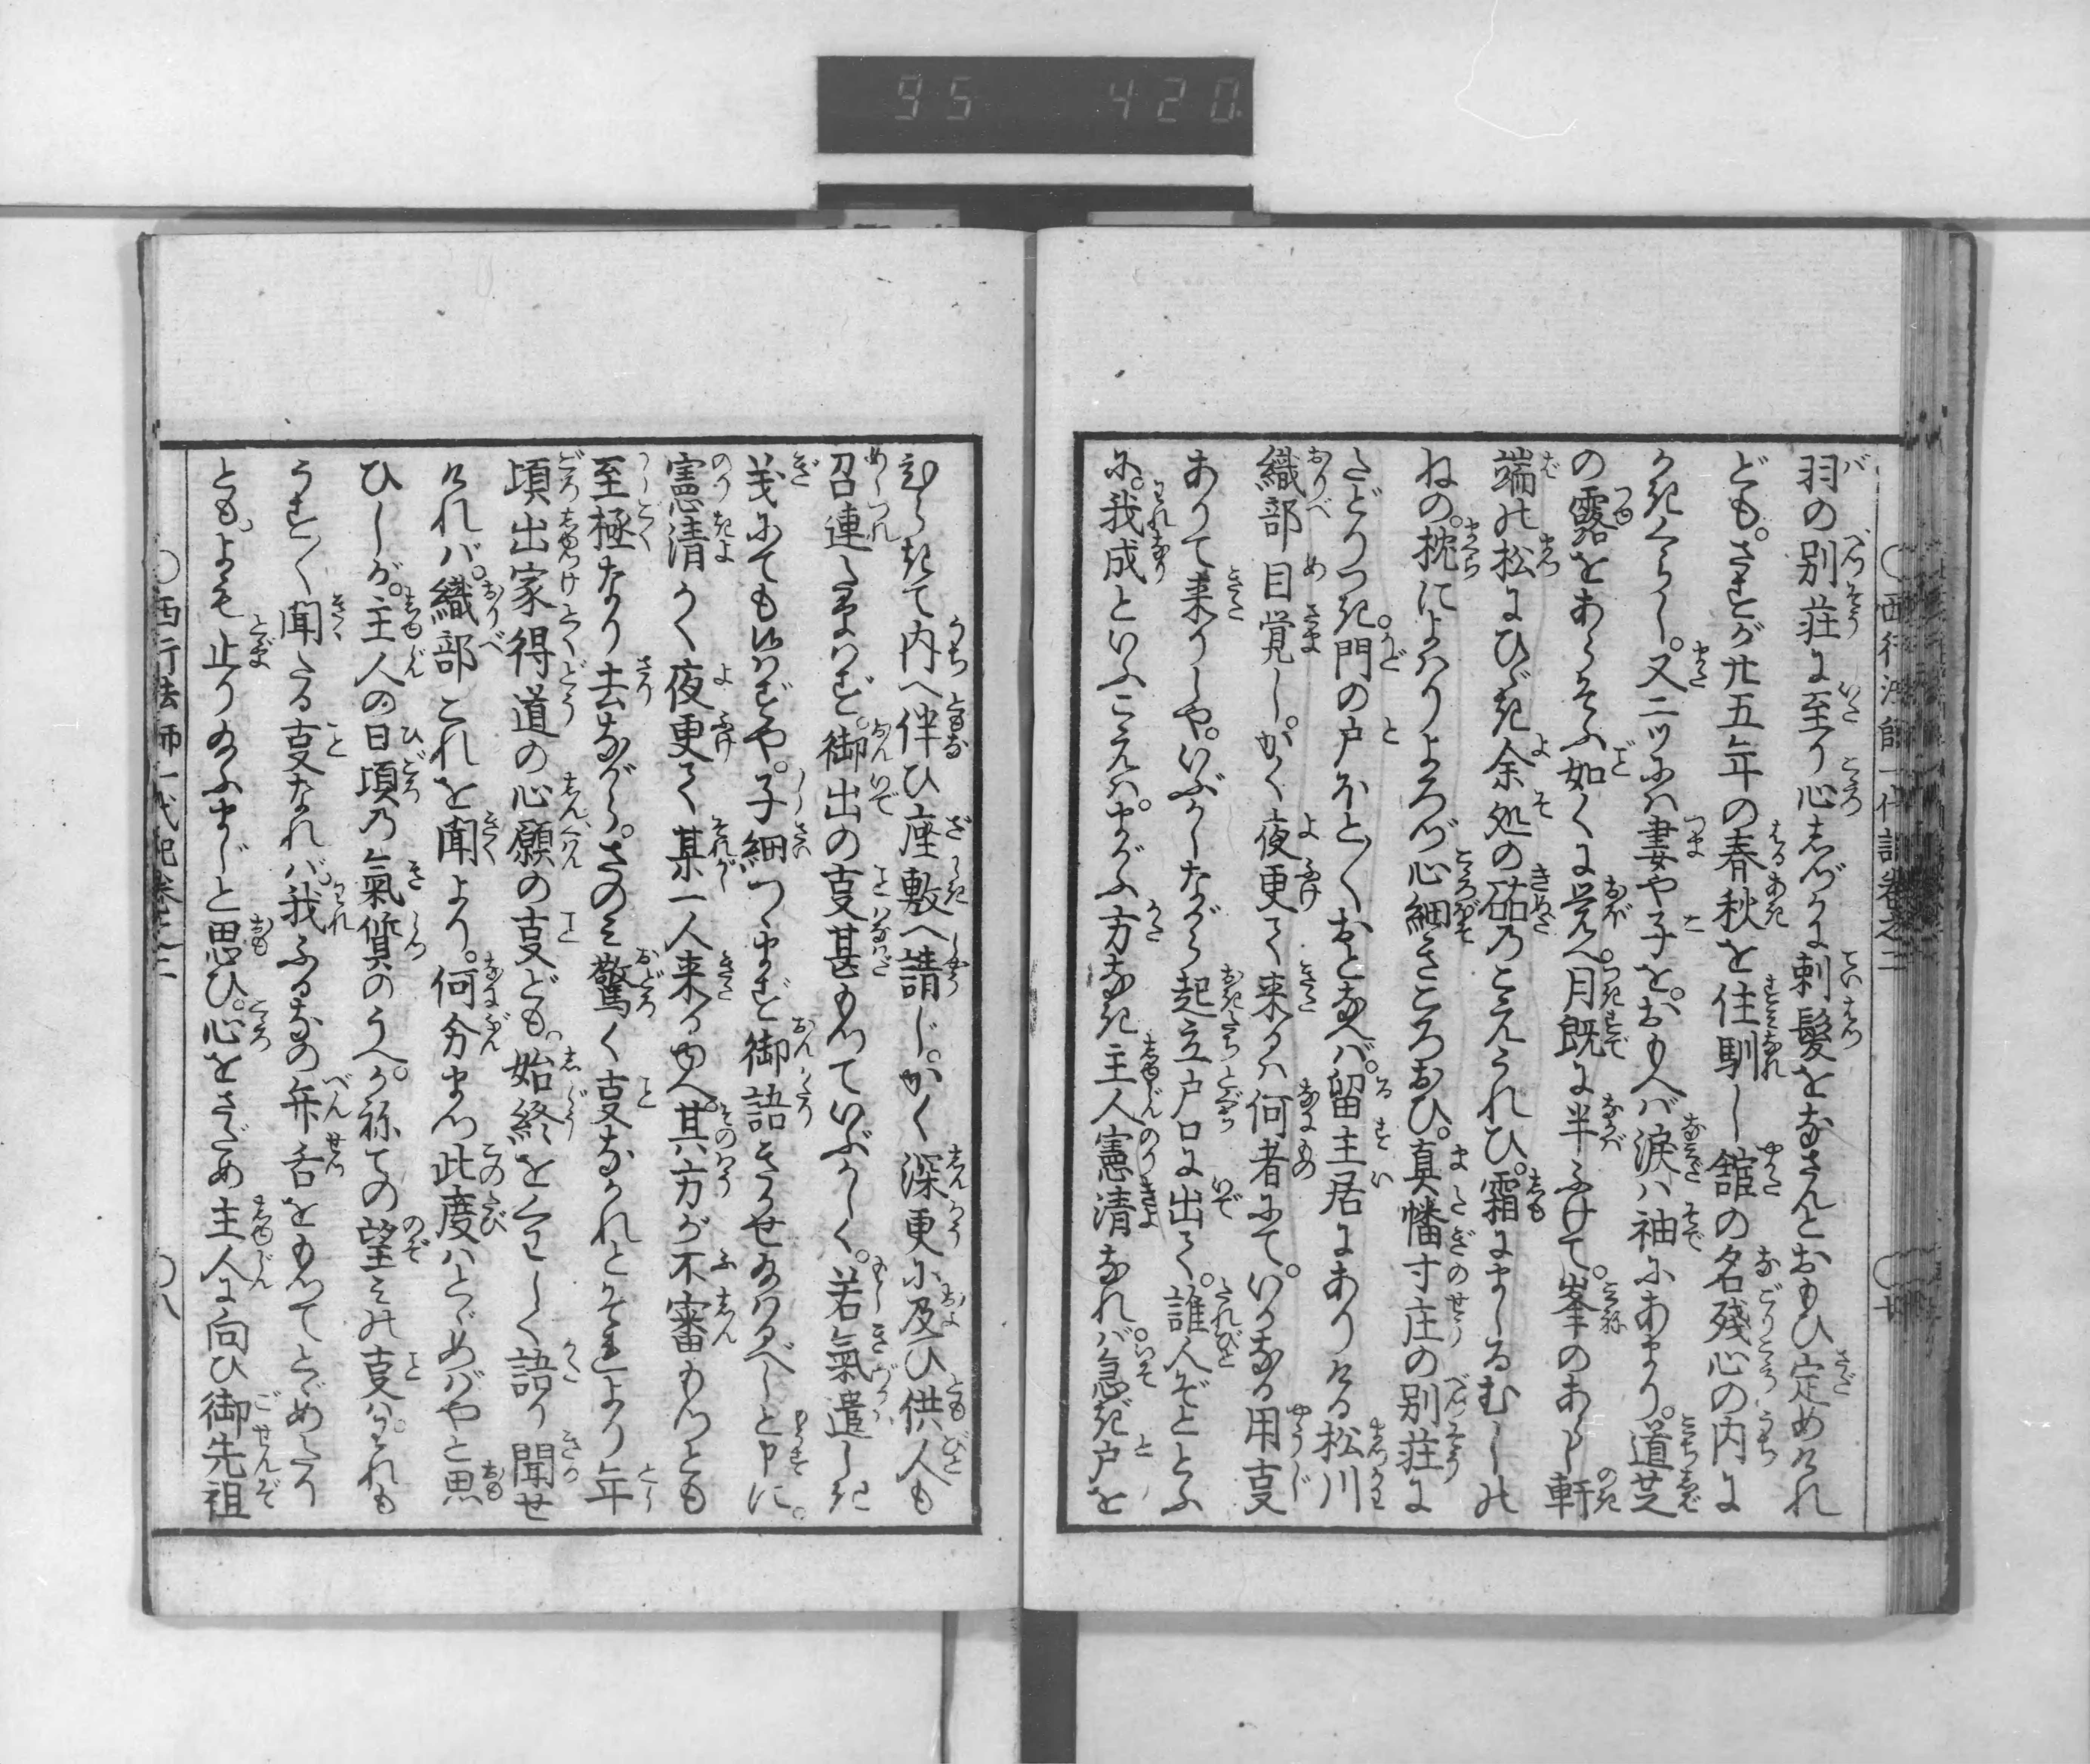 95 420
西行法師一代記巻之二
羽の別荘に至り心しづかに剃髪をなさんとおもひ定めけれ
ども。さすが廿五年の春秋を住馴し舘の名残心の内に
かきくらし。又二ツには妻や子を。おもへば涙は袖にあまり。道芝
の露をあらそふ如くに覚へ。月既に半ふけて。峯のあらし軒
端の松にひゞき余処の砧のこゑうれひ。霜によはるむしの
ねの。枕によはりよろづ心細きころおひ。真幡寸庄の別荘に
たどりつき。門の戸ほと〳〵おとなへば。留主居にありける松川
織部目覚し。かく夜更て来るは何者にて。いかなる用事
ありて来りしや。いぶかしながら起立戸口に出て。誰人ぞととふ
に。我成といふこゑは。まがふ方なき主人憲清なれば。急ぎ戸を
ひらきて内へ伴ひ座敷へ請じ。かく深更に及ひ供人も
召連たまはず。御出の事甚もつていぶかしく。若氣遣しき
義にても候はずや。子細つゝまず御語きかせ給はるべしと申に。
憲清かく夜更て某一人来るゆへ。其方が不審もつとも
至極なり去ながら。さのみ驚く事なかれとかそれより年
頃出家得道の心願の事ども。始終をくはしく語り聞せ
ければ。織部これを聞より。何分まつ此度はとゞめばやと思
ひしが。主人の日頃乃氣質のうへ。かねての望みの事は。われも
うす〳〵聞たる事なれば。我ふるなの弁舌をもつてとゞめたり
とも。よも止り給ふまじと思ひ。心をさだめ主人に向ひ御先祖
西行法師一代記巻之二
〇八